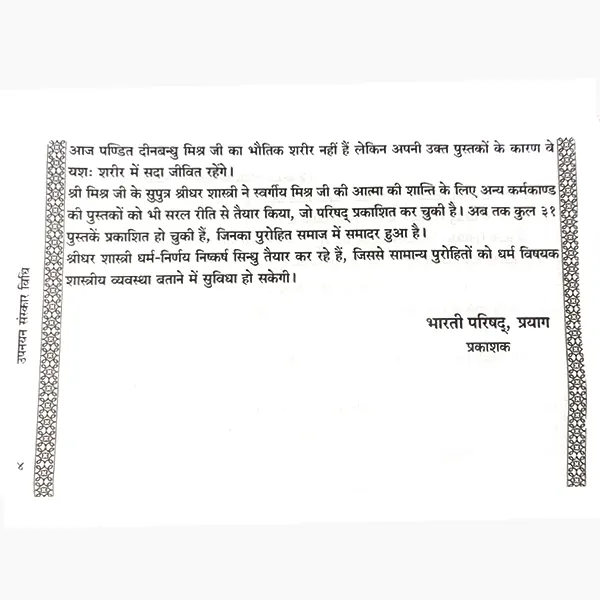 आज पण्डित दीनबन्धु मिश्र जी का भौतिक शरीर नहीं हैं लेकिन अपनी उक्त पुस्तकों के कारण वे
यशः शरीर में सदा जीवित रहेंगे।
श्री मिश्र जी के सुपुत्र श्रीधर शास्त्री ने स्वर्गीय मिश्र जी की आत्मा की शान्ति के लिए अन्य कर्मकाण्ड
की पुस्तकों को भी सरल रीति से तैयार किया, जो परिषद् प्रकाशित कर चुकी है। अब तक कुल ३१
पुस्तकें प्रकाशित हो चुकी हैं, जिनका पुरोहित समाज में समादर हुआ है।
श्रीधर शास्त्री धर्म-निर्णय निष्कर्ष सिन्धु तैयार कर रहे हैं, जिससे सामान्य पुरोहितों को धर्म विषयक
शास्त्रीय व्यवस्था बताने में सुविधा हो सकेगी।
भारती परिषद्, प्रयाग
प्रकाशक
उपनयन संस्कार विधि
४